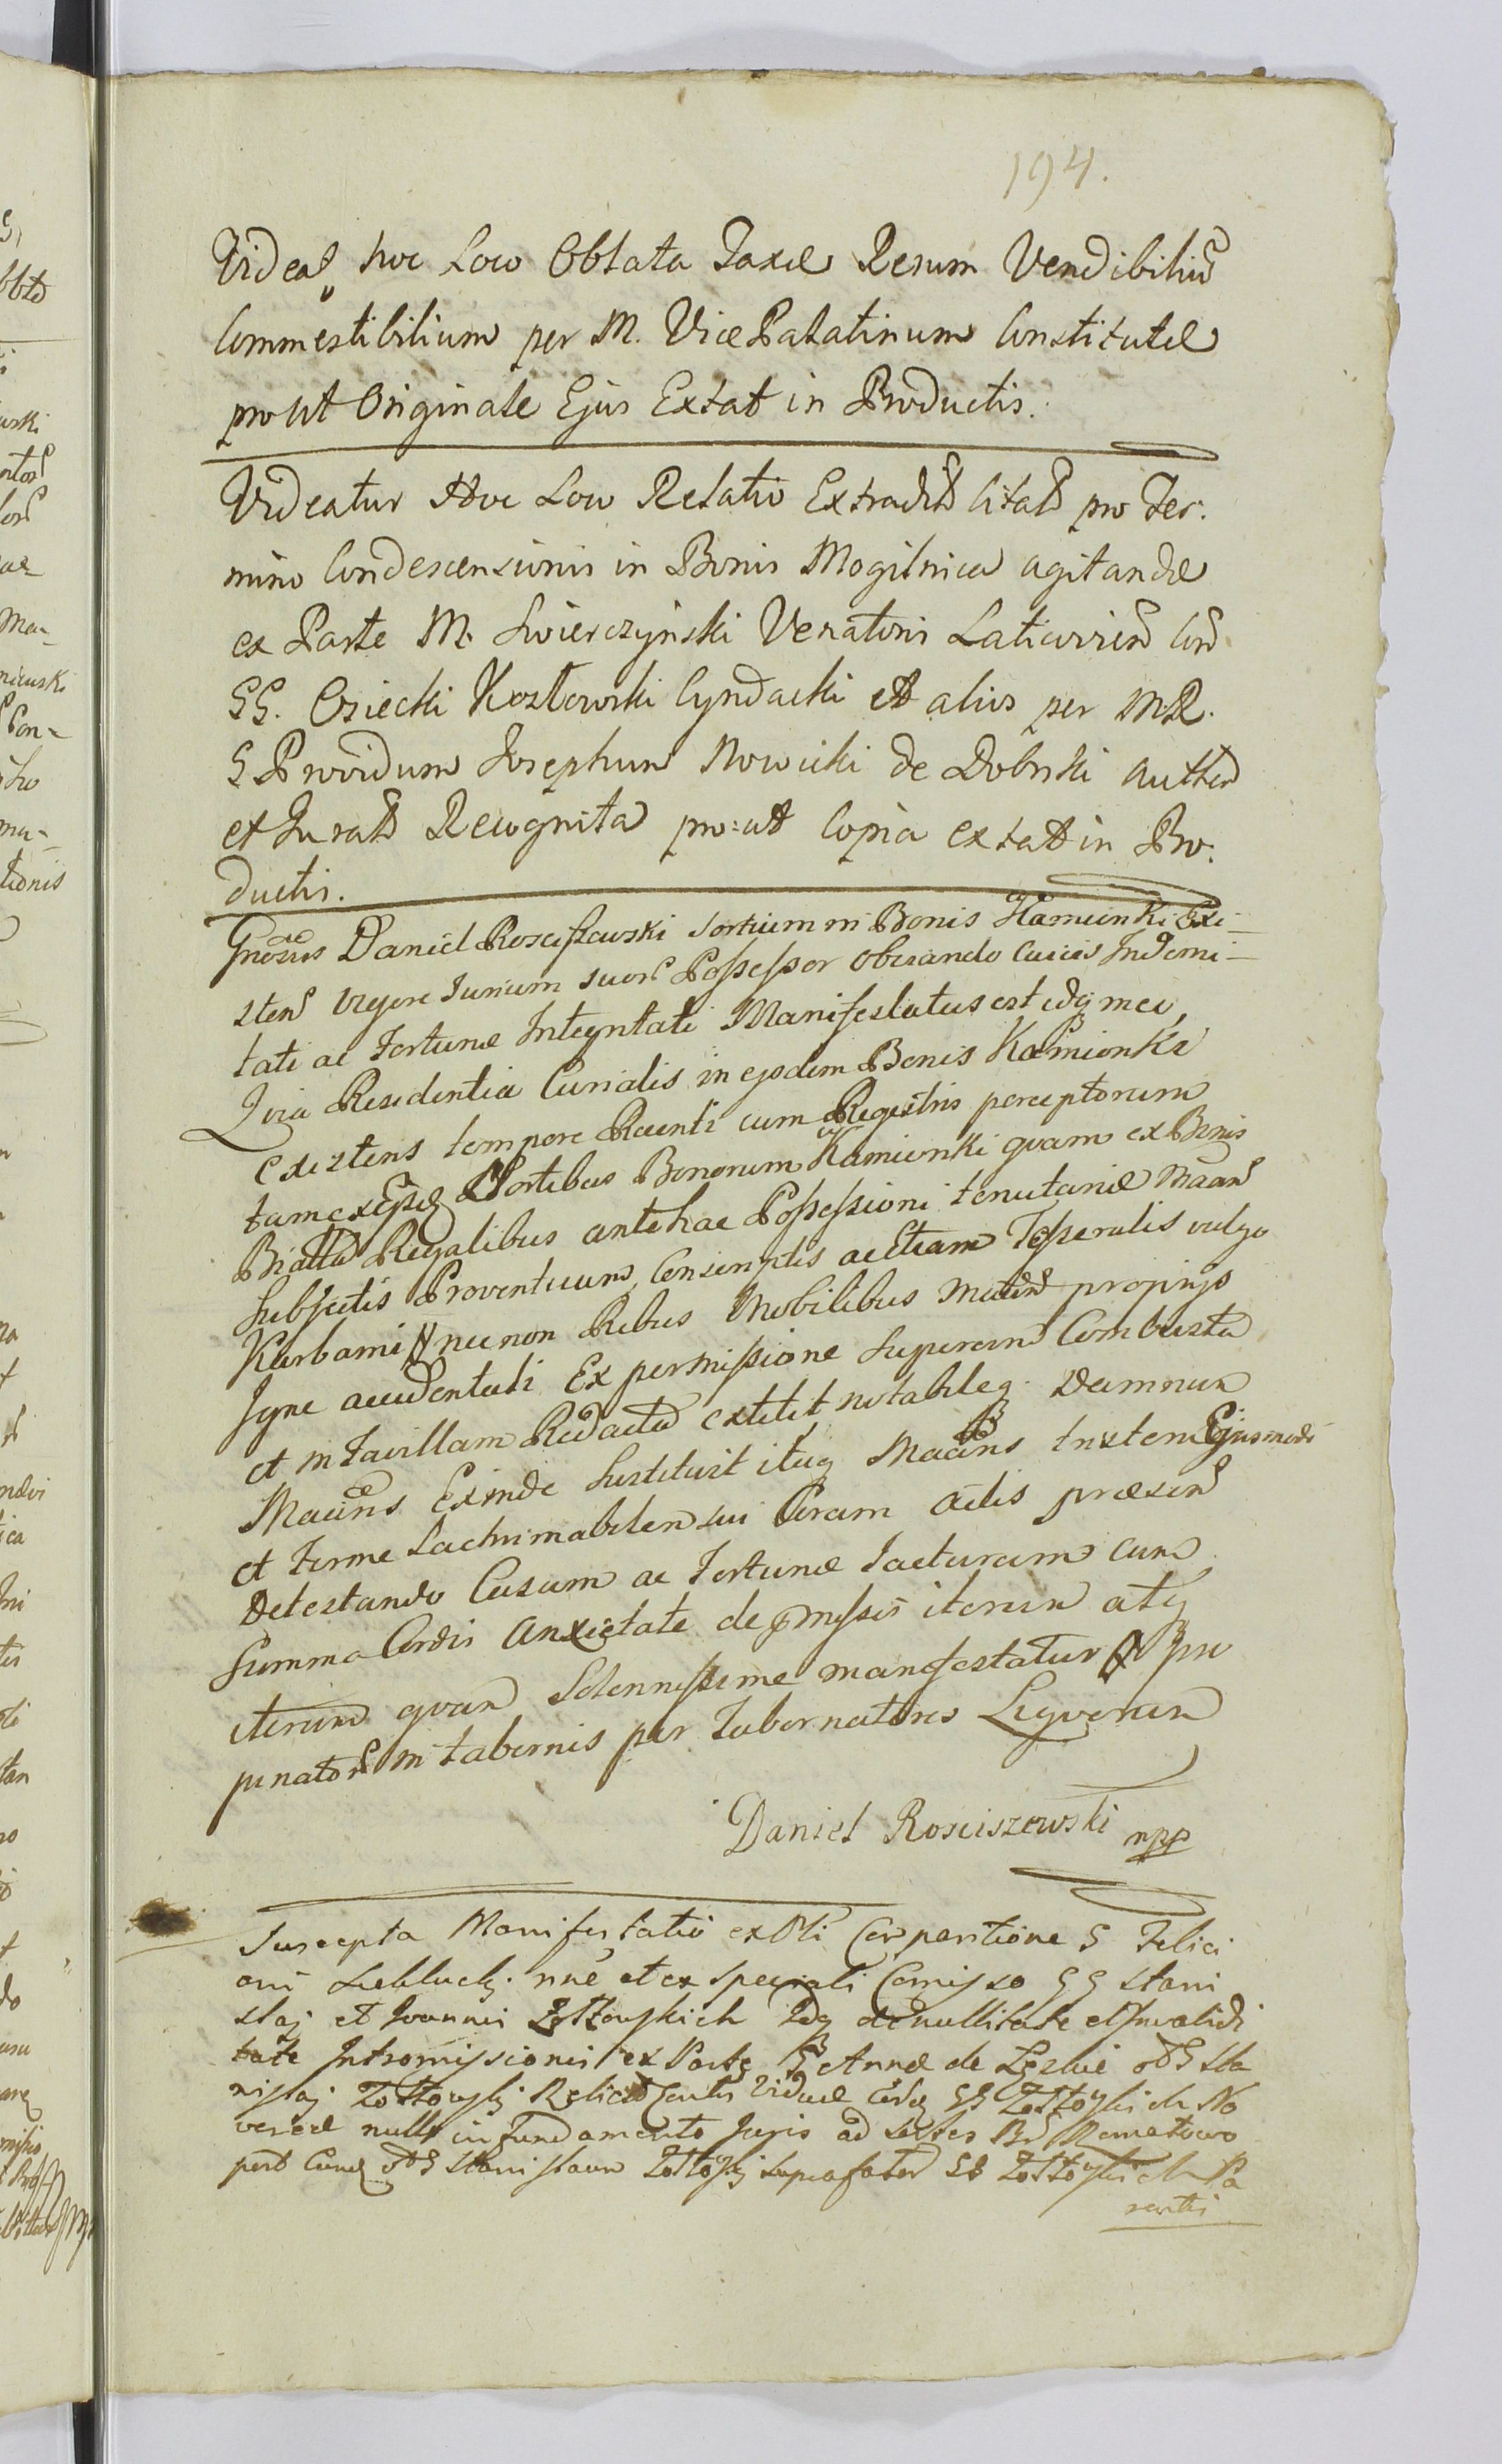 194.
Videat hoc Loco Oblata Taxæ Rerum Vendibiliu
Commestibilium per M. Vice Palatinum Constitutæ
pro ut Originale Ejus Extat in Productis.
Videatur Hoc Loco Relatio Extradit Citat pro Ter:
mino Condescensionis in Bonis Mogilnica agitandæ
ex Parte M. Swierczynski Venatoris Laticovien Con
GG. Osiecki Kozłowski Cyndacki et alios per MR.
G Providum Josephum Nowicki de Dobrski authen
et Jurat Recognita pro=ut Copia extat in Pro:
ductis.
Gnosus Daniel Rosciszewski Sortium in Bonis Kamionki Exi-
sten Vigore Jurium suor Possessor oberando suis Indemni-
tati ac Fortunæ Integritati Manifestatus est idq meo,
Quia Residentia Curialis in ejsdem Bonis Kamionka
existens tempore Recenti cum Regestris perceptorum
tam ex Ejsdq Sortibus Bonorum Kamionki quam ex Bonis
Regalibus antehac Possessioni tenutariæ Maan
Subjectis Proventuum Conscriptis ac Etiam Tesseralis vulgo
Karbami necnon Rebus Mobilibus propinqo
Igne accidentali Ex permissione Superum Combusta
et in Favillam Redacta extitit notabileq Damnum
Maans Exinde Sustituit itaq Maans Ejusmodi
et Ferme Lachrimabilem sui Coram actis præsen
Detestando Casum ac Fortunæ Jacturam cum
Summa Cordis Anxietate de pmissis iterum atq
iterum quam Solennissime manifestatur pro
pinator in tabernis per Tabernatores Liquorum
Daniel Rosciszewski mpp
Suscepta Manifestatio ex Comparitione G Felici
ani nne et ex speciali Comisso GG Stani
slaj et Joannis Zołtowskich Idq de nullitate et Invalidi
tate Intromissionis ex Parte G Annæ de G Sta
nislaj Zołtowskj Viduæ GG Zołtowskich No
vercæ nullo in fundamento Juris ad Sortes
G Stanislaum Zołtowskj suprafator GG Zołtowskich Pa
rentis